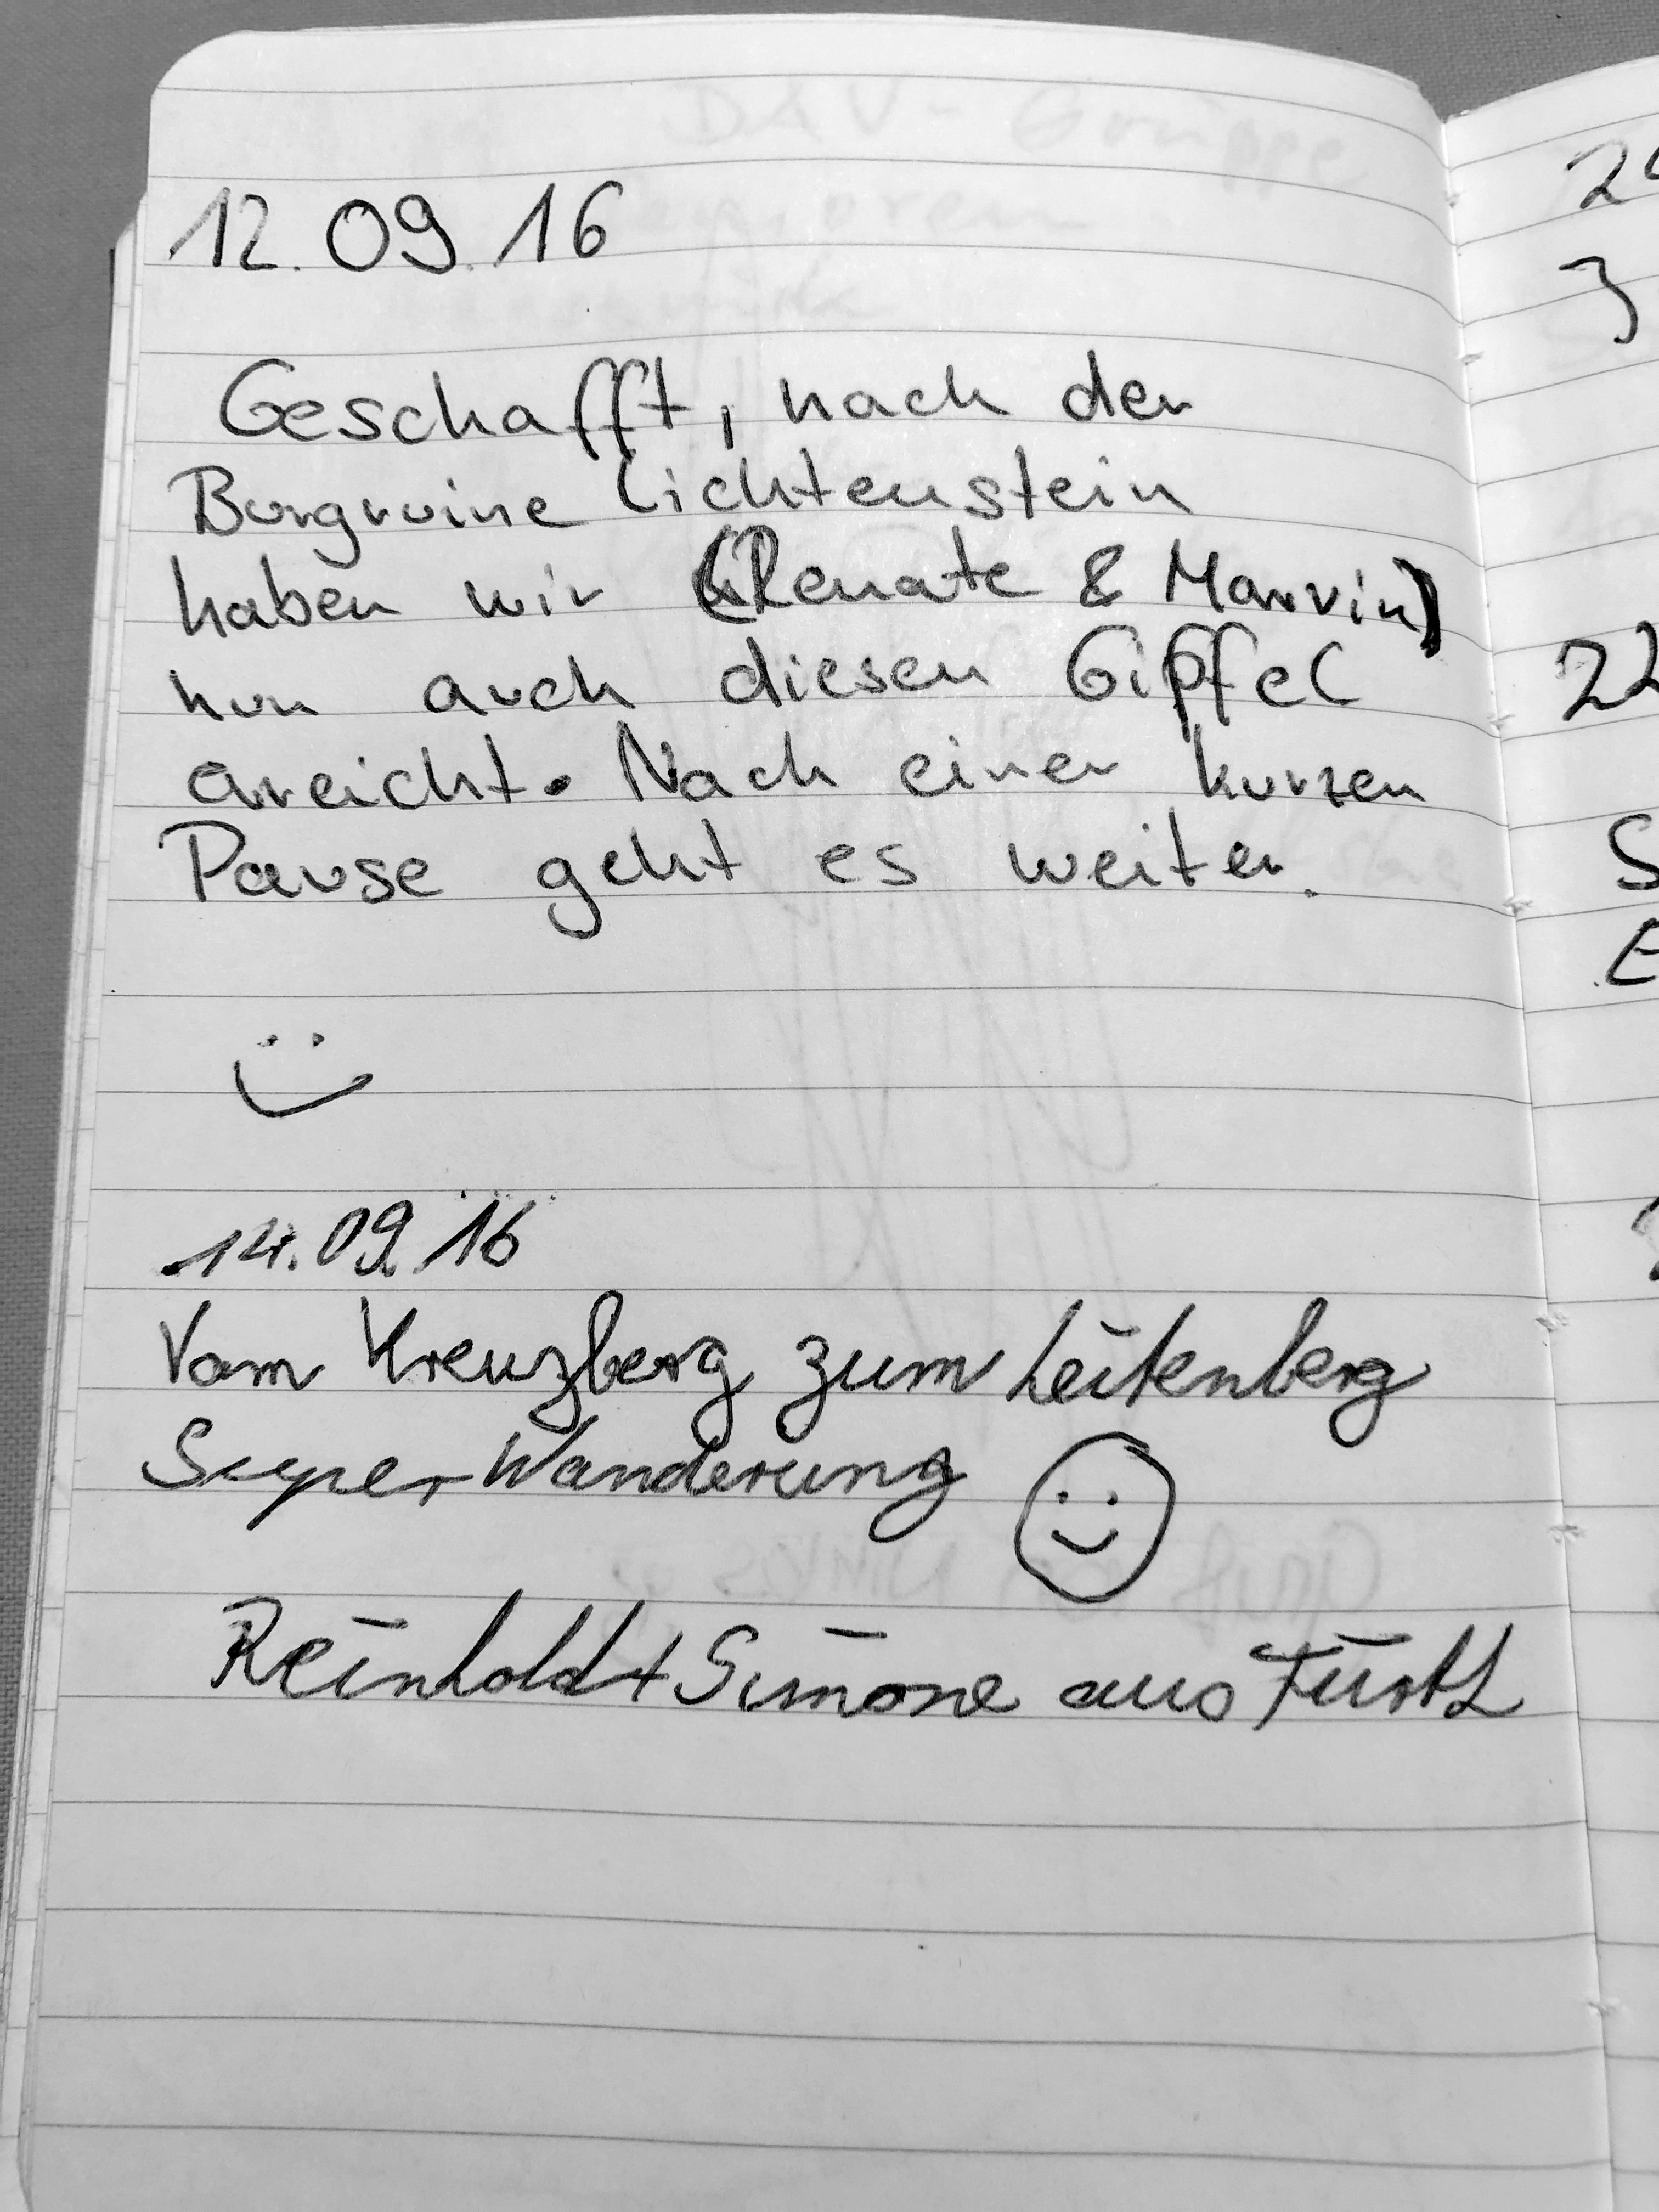 12.09.16
Geschafft, nach der
Burgruine Lichtenstein
haben wir (Renate & Marvin)
nun auch diesen Gipfel
erreicht. Nach einer kurzen
Pause geht es weiter.
14.09.16
Vom Kreuzberg zum Leitenberg
Super Wanderung
Reinhold + Simone aus Fürth
3
22
S
E